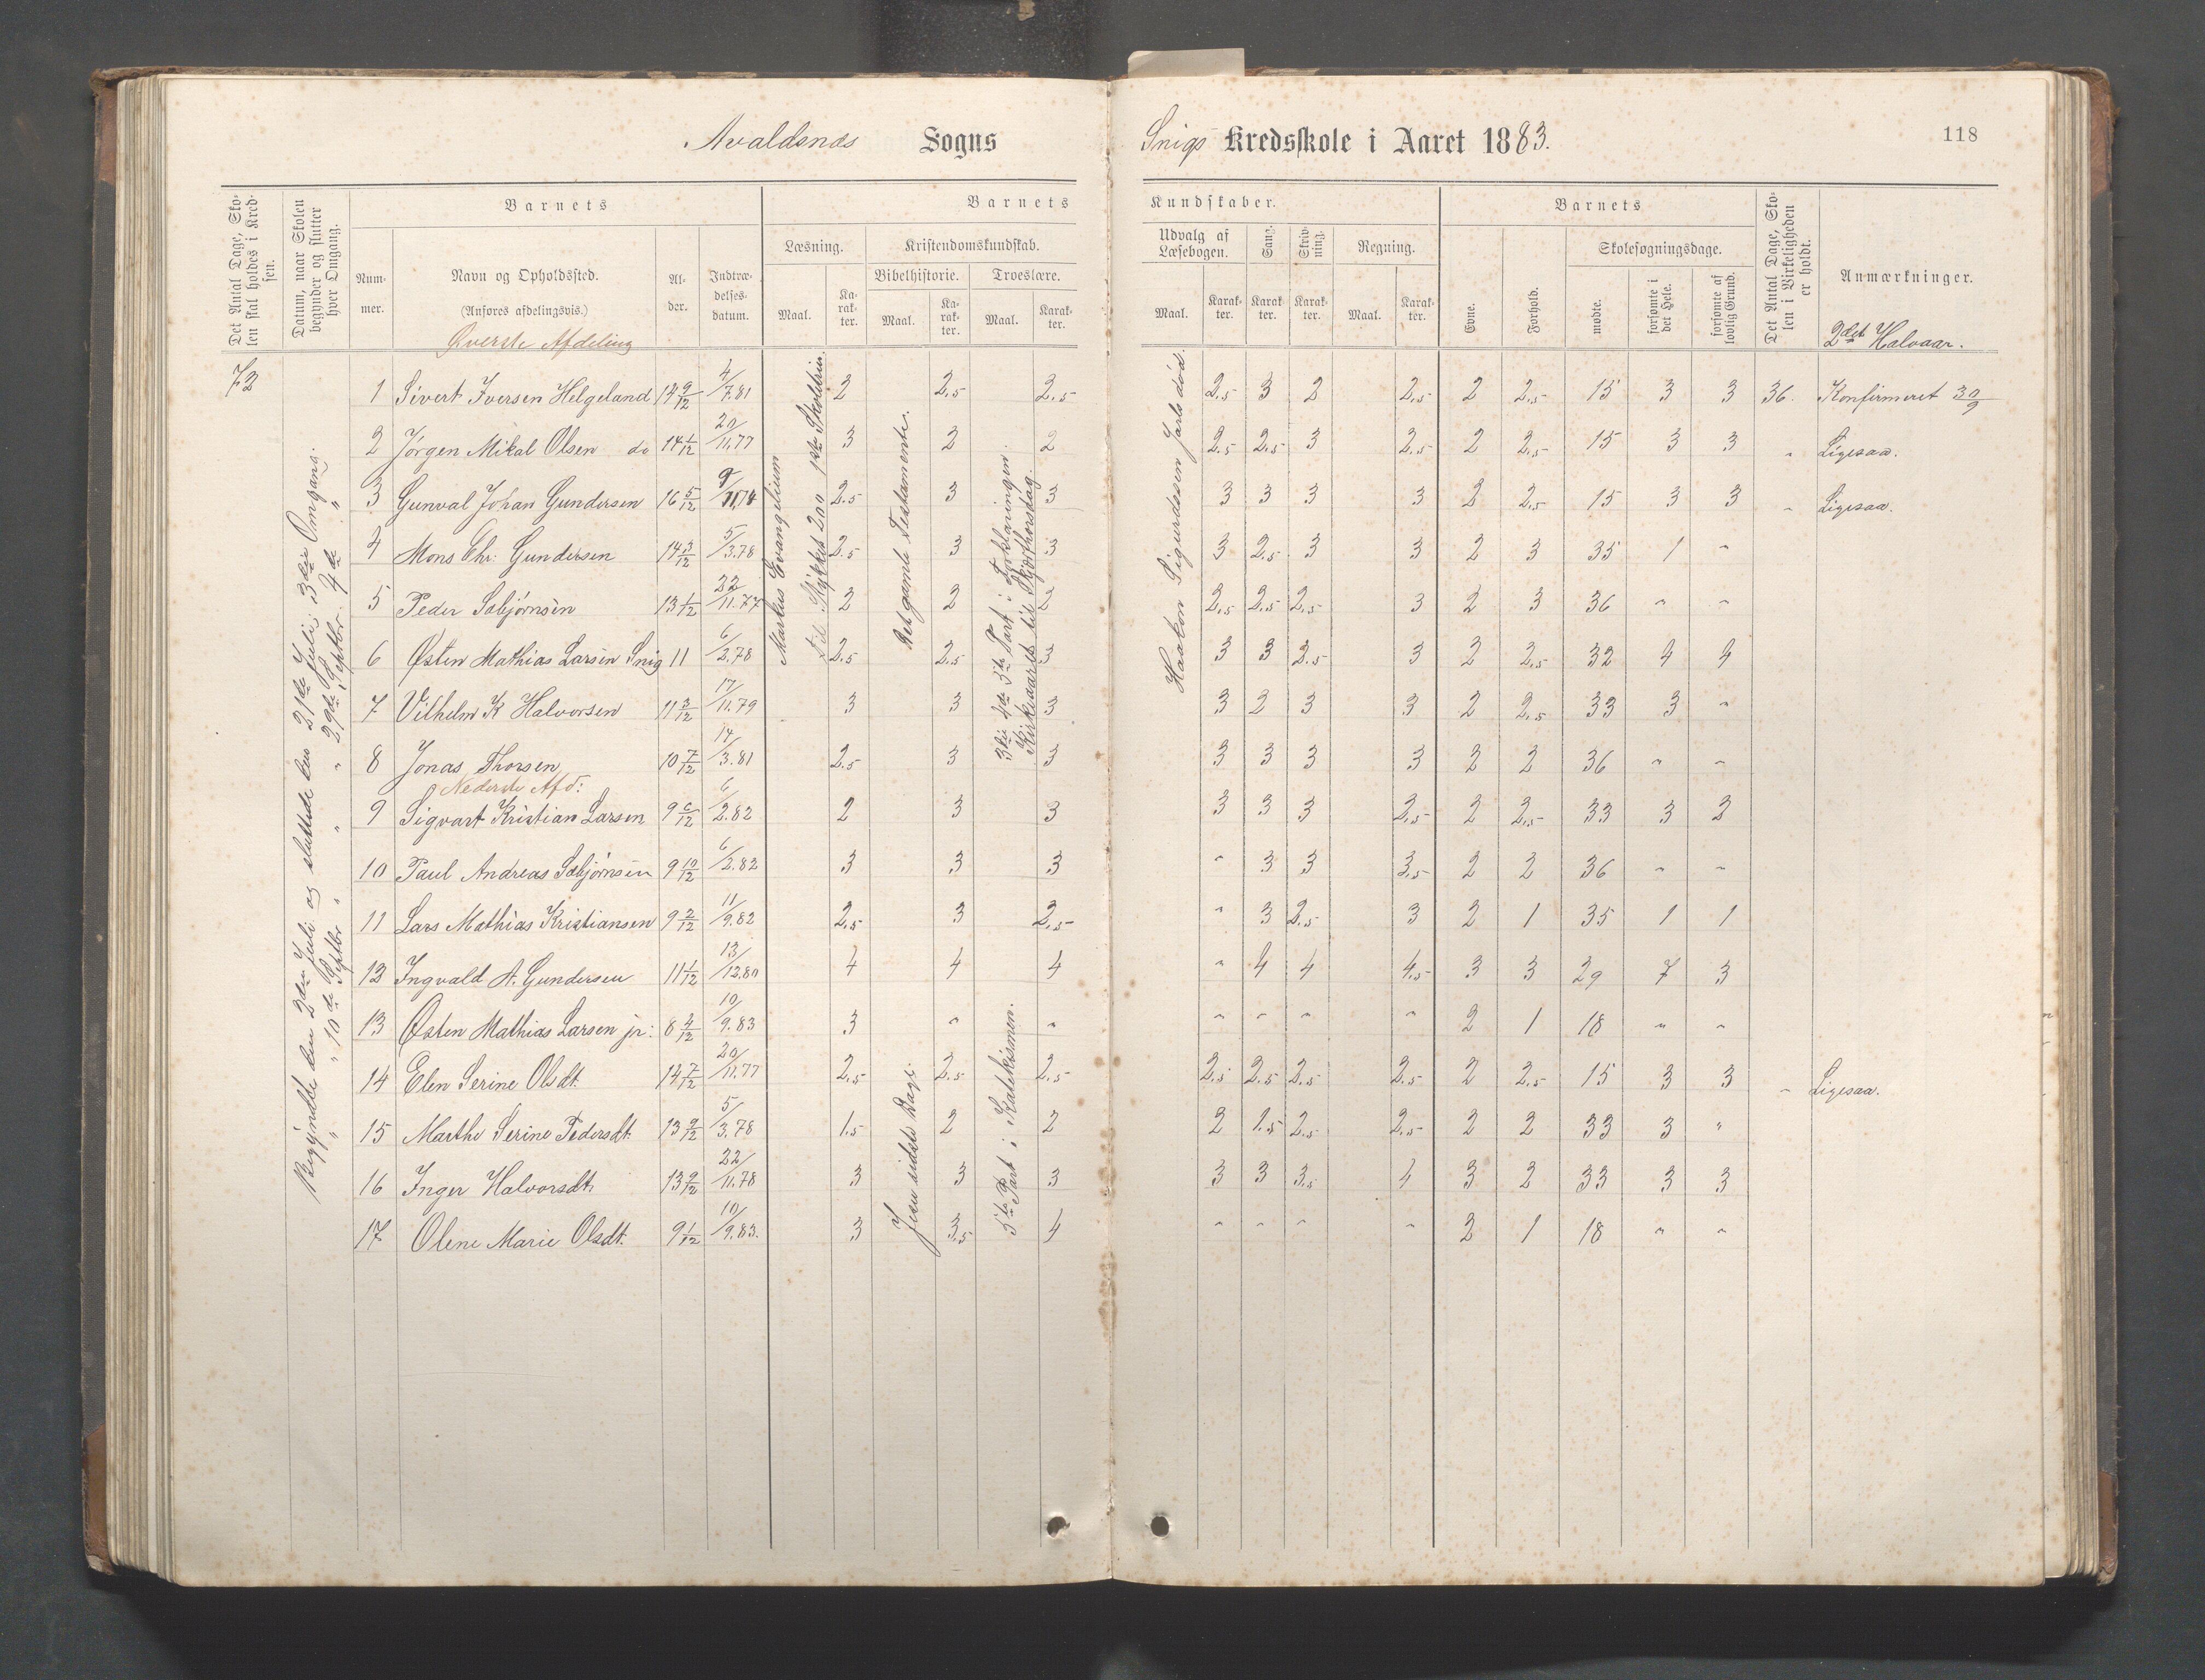 Avaldsnæs Sogns
Snigs Kredsskole i Aaret 1883.
118
Det Antal Dage, Skolen skal holdes i Kredsen.
Datum, naar Skolen begynder og slutter hver Omgang.
Barnets
Nummer.
Navn og Opholdssted.
(Anføres afdelingsvis.)
Øverste Afdeling
Alder.
Indtrædelsesdatum.
Barnets
Kundskaber.
Læsning.
Maal. Karakter.
Kristendomskundskab.
Bibelhistorie.
Maal. Karakter.
Troeslære.
Maal. Karakter.
Udvalg af Læsebogen.
Maal. Karakter.
Sang. Karakter.
Skrivning. Karakter.
Regning.
Maal. Karakter.
Barnets
Evne.
Forhold.
Skolesøgningsdage.
mødte.
forsømte i det Hele.
forsømte af lovlig Grund.
Det Antal Dage, Skolen i Virkeligheden er holdt.
Anmærkninger.
2det Halvaar.
72
Begyndte den 2den Juli og sluttede den 21de Juli. 3die Omgang.
" " 10de Septbr " " " 29de Septbr. 4de "
Markus Evangelium
til Stykket 200 1ste Skoletrin
Det gamle Testamente.
3die 4de 5te Part i Forklaringen.
Kirkeaaret til Skjærthorsdag.
Haakon Sigurdssen Jarls død.
Jesu sidste Dage
5te Part i Katekismen.
1 Sivert Iversen Helgeland 14 9/12 4/7.81 2 2.5 2.5 2.5 3 2 2.5 2 2.5 15 3 3 36. Konfirmeret 30/9
2 Jørgen Mikal Olsen do 14 1/12 20/11.77 3 2 2 2.5 2.5 3 2.5 2 2.5 15 3 3 " Ligesaa.
3 Gunval Johan Gundersen 16 5/12 2.5 3 3 3 3 3 3 2 2.5 15 3 3 " Ligesaa.
4 Mons Chr. Gundersen 14 3/12 5/3.78 2.5 3 3 3 2.5 3 3 2 3 35 1 "
5 Peder Sæbjørnsen 13 1/12 22/11.77 2 2 2 2.5 2.5 2.5 3 2 3 36 " "
6 Østen Mathias Larsen Snig 11 6/2.78 2.5 2.5 3 3 3 2.5 3 2 2.5 32 4 4
7 Vilhelm K Halvorsen 11 3/12 17/11.79 3 3 3 3 2 3 3 2 2.5 33 3 "
8 Jonas Thorsen 10 7/12 14/3.81 2.5 3 3 3 3 3 3 2 2 36 " "
Nederste Afd:
9 Sigvart Kristian Larsen 9 6/12 6/2.82 2 3 3 3 3 3 2.5 2 2.5 33 3 2
10 Paul Andreas Sæbjørnsen 9 10/12 6/2.82 3 3 3 " 3 3 3.5 2 2 36 " "
11 Lars Mathias Kristiansen 9 2/12 11/9.82 2.5 3 2.5 " 3 2.5 3 2 1 35 1 1
12 Ingvald A. Gundersen 11 1/12 13/12.80 4 4 4 " 4 4 4.5 3 3 29 7 3
13 Østen Mathias Larsen jr: 8 4/12 10/9.83 3 " " " " " " 2 1 18 " "
14 Elen Serine Olsdt. 14 7/12 20/11.77 2.5 2.5 2.5 2.5 2.5 2.5 2.5 2 2.5 15 3 3 " Ligesaa.
15 Marthe Serine Pedersdt. 13 9/12 5/3.78 1.5 2 2 2 1.5 2.5 2.5 2 2 33 3 "
16 Inger Halvorsdt. 13 9/12 22/11.78 3 3 3 3 3 3.5 4 3 2 33 3 3
17 Olene Marie Olsdt. 9 1/12 10/9.83. 3 3.5 4 " " " " 2 1 18 " "